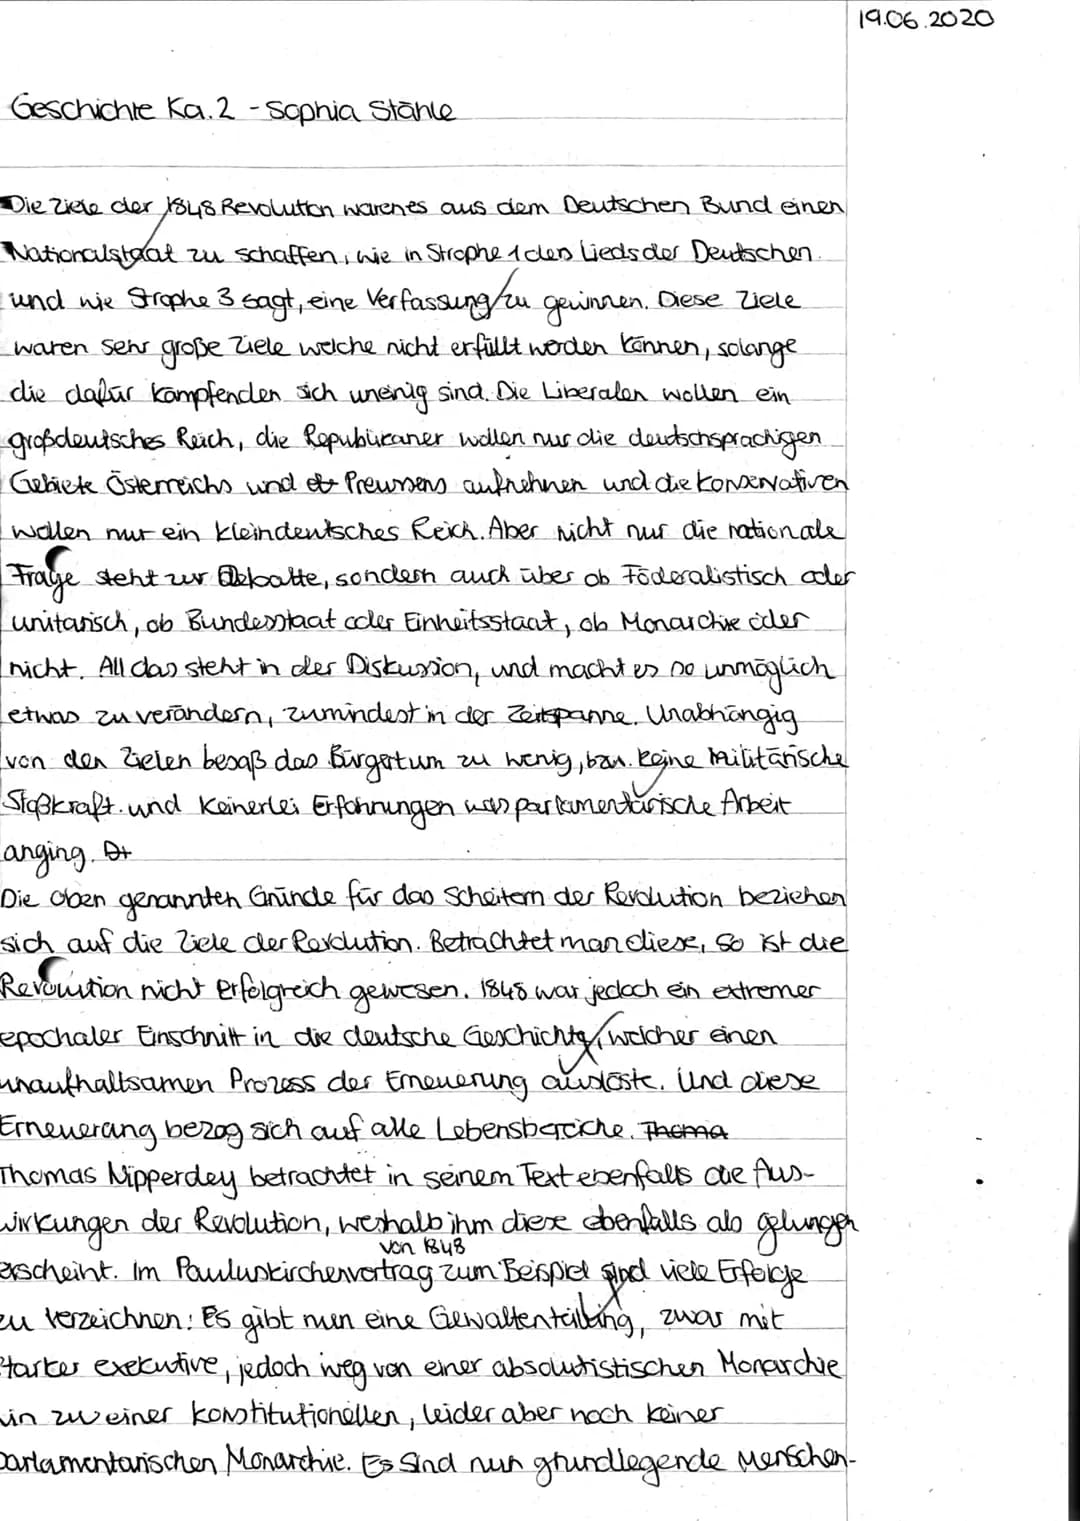 19.06.2020
Geschichte Ka. 2 - Sophia Stähle
Die Ziele der 1848 Revolution waren es aus dem Deutschen Bund einen
Nationalstaat zu schaffen, wie in Strophe 1 des Lieds der Deutschen
und wie Strophe 3 sagt, eine Verfassung zu gewinnen. Diese Ziele
waren sehr große Ziele welche nicht erfüllt werden können, solange
die dafür kämpfenden sich uneinig sind. Die Liberalen wollen ein
großdeutsches Reich, die Republicaner wollen nur die deutschsprachigen
Gebiete Österreichs und Preussens aufnehmen und die Konservativen
wollen nur ein kleindeutsches Reich. Aber nicht nur die nationale
Frage steht zur Debatte, sondern auch über ob Föderalistisch oder
unitarisch, ob Bundesstaat oder Einheitsstaat, ob Monarchie oder
nicht. All das steht in der Diskussion, und macht es so unmöglich
etwas zu verändern, zumindest in der Zeitspanne. Unabhängig
von den Zielen besaß das Bürgertum zu wenig, bzw. keine Militärische
Stoßkraft. und keinerlei Erfahrungen was parlamentarische Arbeit
anging.
Die oben genannten Gründe für das Scheitern der Revolution beziehen
sich auf die Ziele der Revolution. Betrachtet man diese, so ist die
Revolution nicht erfolgreich gewesen. 1848 war jedoch ein extremer
epochaler Einschnitt in die deutsche Geschichte, welcher einen
unaufhaltsamen Prozess der Erneuerung auslöste. Und diese
Erneuerung bezog sich auf alle Lebensbereiche. Thoma
Thomas Nipperdey betrachtet in seinem Text ebenfalls die Aus-
wirkungen der Revolution, weshalb ihm diese ebenfalls als gelungen
erscheint. Im Pauluskirchenvertrag von 1848 zum Beispiel sind viele Erfolge
zu verzeichnen: Es gibt nun eine Gewaltenteilung, zwar mit
starker exekutive, jedoch weg von einer absolutistischen Monarchie
hin zu einer konstitutionellen, leider aber noch keiner
parlamentarischen Monarchie. Es Sind nun grundlegende Menschen-